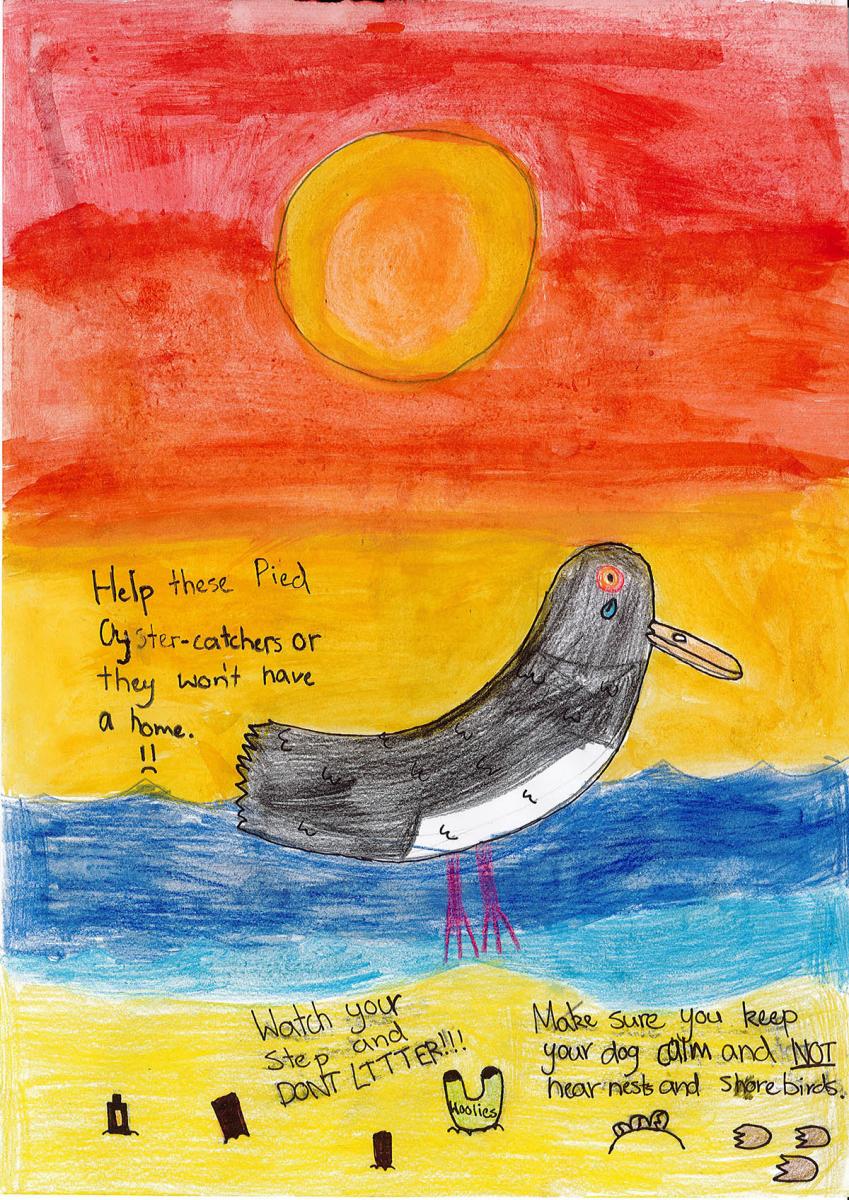 Help these Pied
Oyster-catchers or
they won't have
a home.
!!
Watch your
step and
DONT LITTER!!!
Make sure you keep
your dog calm and NOT
near nests and shore birds.
Woolies